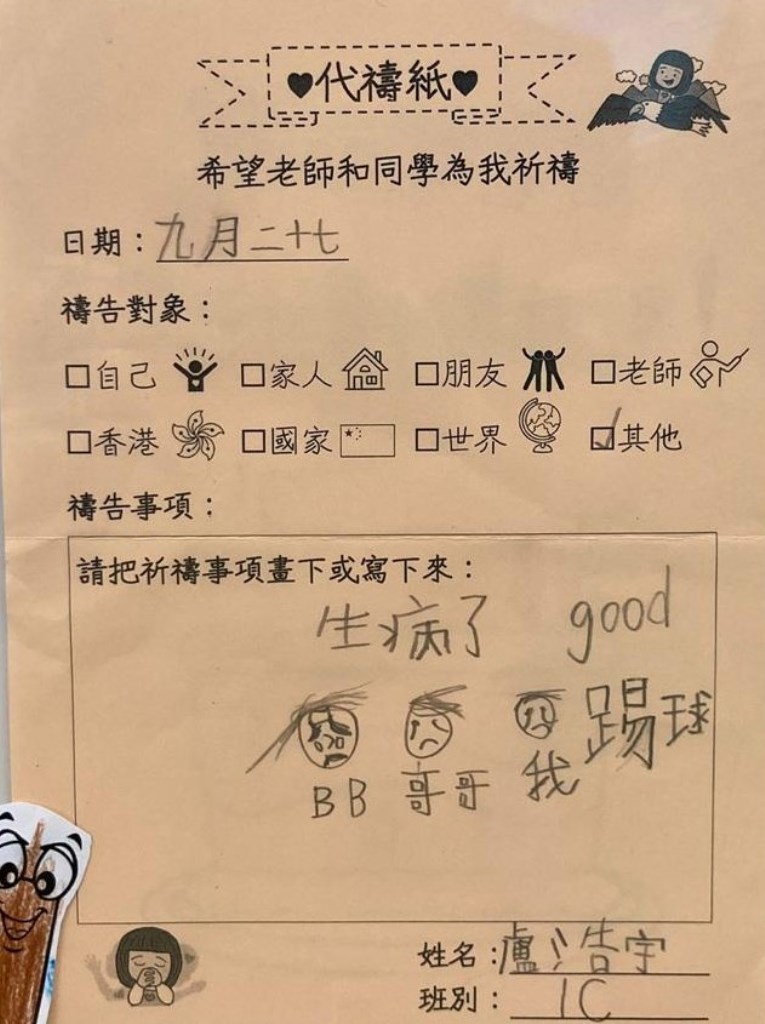 ♥代禱紙♥
希望老師和同學為我祈禱
日期：九月二十七
禱告對象：
□自己 □家人 □朋友 □老師
□香港 □國家 □世界 ☑其他
禱告事項：
請把祈禱事項畫下或寫下來：
生病了 good
踢球
BB 哥哥 我
姓名：盧浩宇
班別：1C